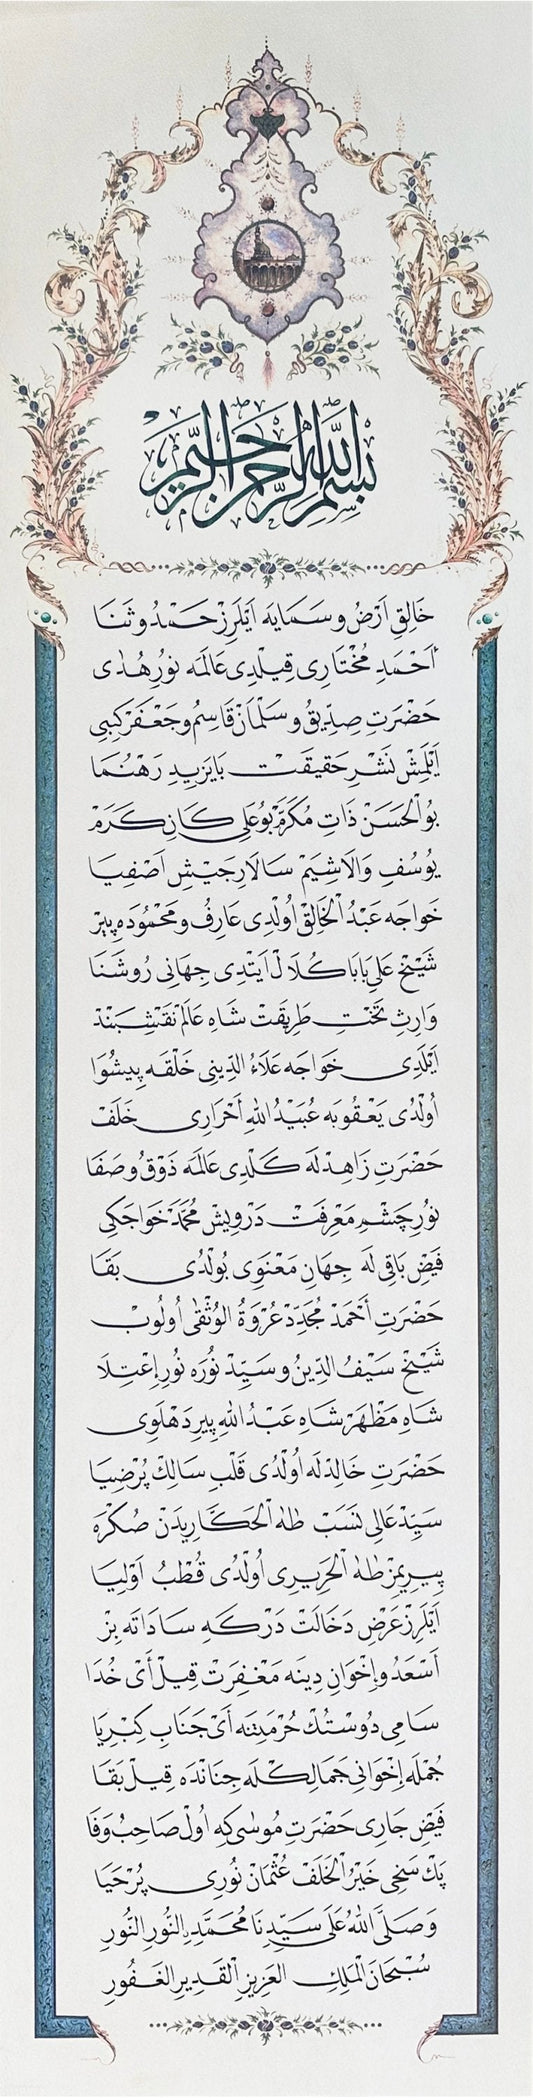 بسم الله الرحمن الرحيم
خَالِقِ اَرْضُ و سَمَايَه اَيْلَرِزْ حَمْدُ و ثَنَا
اَحْمَدِ مُخْتَارِى قِيلْدِى عَالَمَه نُورِ هُدٰى
حَضْرَتِ صِدِّيقُ و سَلْمَانْ قَاسِمُ و جَعْفَرْ كِبِى
اَيْلَمِشْ نَشْرِ حَقِيقَتْ بَايَزِيدِ رَهْنُمَا
بُو الْحَسَنْ ذَاتِ مُكَرَّمْ بُو عَلِى كَانِ كَرَمْ
يُوسُفِ وَالَاشِيَمْ سَالَارِ جَيْشِ اَصْفِيَا
خَواجَه عَبْدُ الْخَالِقْ اُولْدِى عَارِفُ و مَحْمُودَه پِيرْ
شَيْخْ عَلِى بَابَا كُلَالْ اَيْتْدِى جِهَانِى رُوشَنَا
وَارِثِ تَخْتِ طَرِيقَتْ شَاهِ عَالَمْ نَقْشِبَنْدْ
اَيْلَدِى خَوَاجَه عَلَاءُ الدِّينِى خَلْقَه پِيشُوَا
اُولْدُى يَعْقُوبَه عُبَيْدُ اللهِ اَحْرَارِى خَلَفْ
حَضْرَتِ زَاهِدْلَه كَلْدِى عَالَمَه ذَوْقُ و صَفَا
نُورِ چَشْمِ مَعْرِفَتْ دَرْوِيشْ مُحَمَّدْ خَواجَكِى
فَيْضِ بَاقِى لَه جِهَانِ مَعْنَوِى بُولْدُى بَقَا
حَضْرَتِ اَحْمَدْ مُجَدِّدْ عُرْوَةُ الْوُثْقٰى اُولُوبْ
شَيْخْ سَيْفُ الدِّينُ و سَيِّدْ نُورَه نُورِ اِعْتِلَا
شَاهِ مَظْهَرْ شَاهِ عَبْدُ اللهِ پِيرِ دَهْلَوِى
حَضْرَتِ خَالِدْلَه اُولْدُى قَلْبِ سَالِكْ پُرْضِيَا
سَيِّدِ عَالِى نَسَبْ طٰهٰ الْحَكَّارِيدَنْ صُكْرَه
پِيرِيمِزْ طٰهٰ الْحَرِيرِى اُولْدُى قُطْبُ اَوْلِيَا
اَيْلَرِزْ عَرْضِ دَخَالَتْ دَرْكَهِ سَادَاتَه بِزْ
اَسْعَدُ و اِخْوَانِ دِينَه مَغْفِرَتْ قِيلْ اَىْ خُدَا
سَامِى دُوسْتُكْ حُرْمَتِنَه اَىْ جَنَابِ كِبْرِيَا
جُمْلَه اِخْوَانِى جَمَالِكْلَه جِنَانْدَه قِيلْ بَقَا
فَيْضِ جَارِى حَضْرَتِ مُوسٰى كِه اُولْ صَاحِبْ وَفَا
پَكْ سَخِى خَيْرُ الْخَلَفْ عُثْمَانْ نُورِى پُرْحَيَا
وَصَلَّى اللهُ عَلٰى سَيِّدِنَا مُحَمَّدٍ النُّورِ النُّورِ
سُبْحَانَ الْمَلِكِ الْعَزِيزِ الْقَدِيرِ الْغَفُورِ